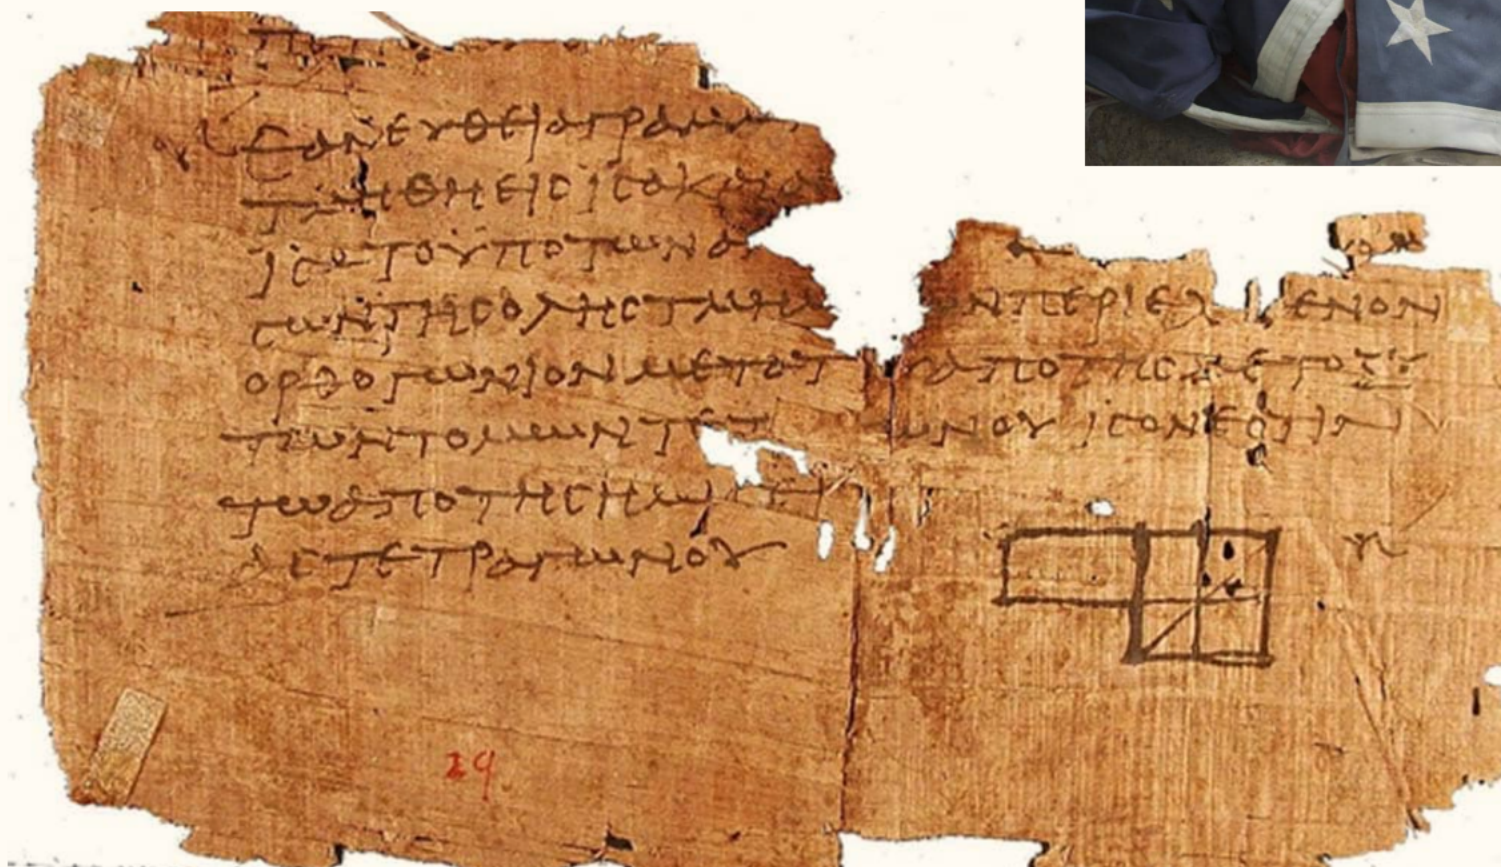 ΕΑΝ ΕΥΘΕΙΑ ΓΡΑΜΜ
ΤΜΗΘΗ ΕΙϹ ΙϹΑ ΚΑΙ Α
ΙϹΑ ΤΟ ΥΠΟ ΤΩΝ Α
ϹΩΝ ΤΗϹ ΟΛΗϹ ΤΜΗΜ ΩΝ ΠΕΡΙΕΧ ΕΝΟΝ
ΟΡΘΟΓΩΝΙΟΝ ΜΕΤΑ Τ Υ ΑΠΟ ΤΗϹ ΜΕΤΟΞΥ
ΤΩΝ ΤΟΜΩΝ ΤΕΤ ΩΝΟΥ ΙϹΟΝ ΕϹΤΙΝ
ΤΩ ΑΠΟ ΤΗϹ ΗΜΙ
ΑϹ ΤΕΤΡΑΓΩΝΟΥ
29